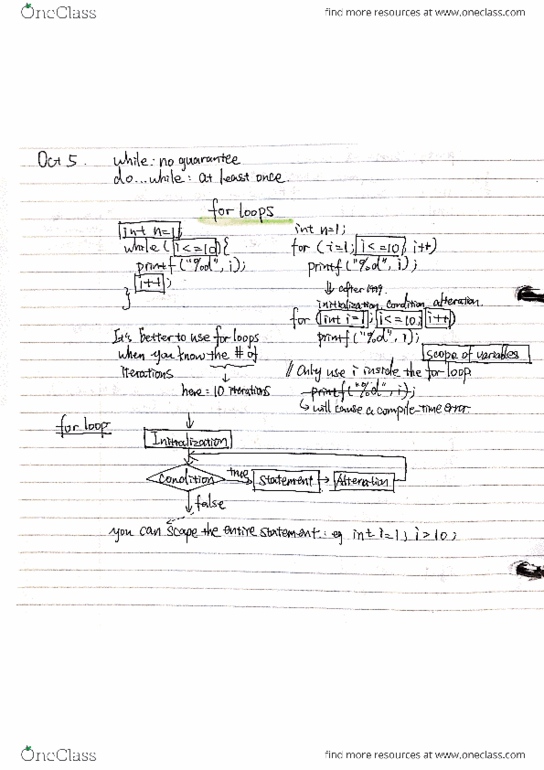 OneClass
find more resources at www.oneclass.com
Oct 5.
while: no guarantee
do...while: at least once.
for loops
int n=1;
while (i<=10){
printf("%d", i);
i++;
}
int n=1;
for (i=1; i<=10; i++)
printf("%d", i);
initialization, condition, alteration
for (int i=1; i<=10; i++)
printf("%d", i);
Scope of variables
It's better to use for loops
when you know the # of
iterations
here = 10 iterations
// Only use i inside the for loop
printf("%d", i);
↳ will cause a compile-time error
for loop
Initialization
condition
true
statement
Alteration
false
you can scope the entire statement: eg int i=1; i>10;
OneClass
find more resources at www.oneclass.com